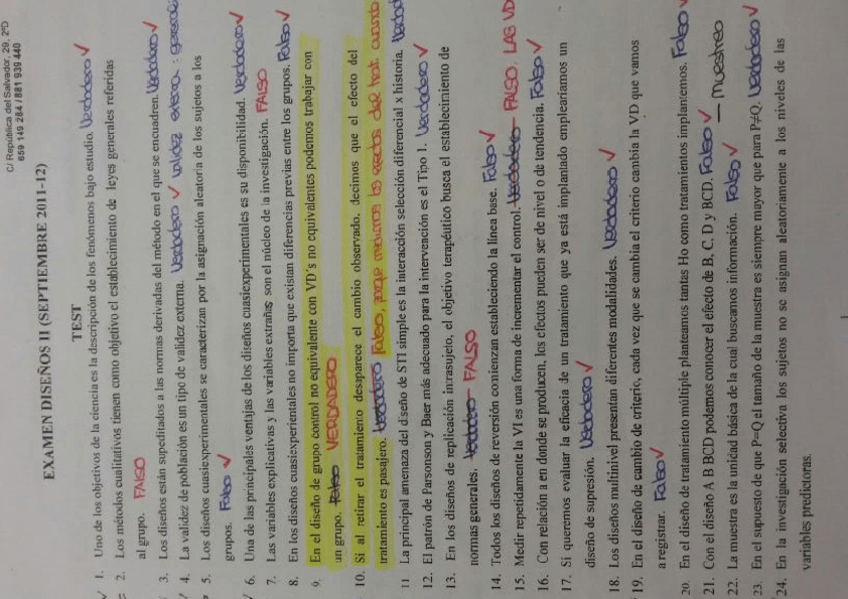 C/ República del Salvador, 29, 2ºD
659 149 284 / 881 939 440
EXAMEN DISEÑOS II (SEPTIEMBRE 2011-12)
TEST
1. Uno de los objetivos de la ciencia es la descripción de los fenómenos bajo estudio. Verdadero ✓
2. Los métodos cualitativos tienen como objetivo el establecimiento de leyes generales referidas
al grupo. FALSO
3. Los diseños están supeditados a las normas derivadas del método en el que se encuadren. Verdadero ✓
4. La validez de población es un tipo de validez externa. Verdadero ✓ validez externa:
5. Los diseños cuasiexperimentales se caracterizan por la asignación aleatoria de los sujetos a los
grupos. Falso ✓
6. Una de las principales ventajas de los diseños cuasiexperimentales es su disponibilidad. Verdadero ✓
7. Las variables explicativas y las variables extrañas son el núcleo de la investigación. FALSO
8. En los diseños cuasiexperientales no importa que existan diferencias previas entre los grupos. Falso ✓
9. En el diseño de grupo control no equivalente con VD's no equivalentes podemos trabajar con
un grupo. Falso VERDADERO
10. Si al retirar el tratamiento desaparece el cambio observado, decimos que el efecto del
tratamiento es pasajero. Verdadero Falso, porque los efectos del trat. cuando
11 La principal amenaza del diseño de STI simple es la interacción selección diferencial x historia.
12. El patrón de Parsonson y Baer más adecuado para la intervención es el Tipo 1. Verdadero ✓
13. En los diseños de replicación intrasujeto, el objetivo terapéutico busca el establecimiento de
normas generales. Verdadero - FALSO
14. Todos los diseños de reversión comienzan estableciendo la línea base. Falso ✓
15. Medir repetidamente la VI es una forma de incrementar el control. Verdadero - FALSO, LAS VD
16. Con relación a en donde se producen, los efectos pueden ser de nivel o de tendencia. Falso ✓
17. Si queremos evaluar la eficacia de un tratamiento que ya está implantado emplearíamos un
diseño de supresión. Verdadero ✓
18. Los diseños multinivel presentan diferentes modalidades. Verdadero ✓
19. En el diseño de cambio de criterio, cada vez que se cambia el criterio cambia la VD que vamos
a registrar. Falso ✓
20. En el diseño de tratamiento múltiple planteamos tantas Ho como tratamientos implantemos. Falso ✓
21. Con el diseño A B BCD podemos conocer el efecto de B, C, D y BCD. Falso ✓
22. La muestra es la unidad básica de la cual buscamos información. Falso ✓ — muestreo
23. En el supuesto de que P=Q el tamaño de la muestra es siempre mayor que para P≠Q. Verdadero ✓
24. En la investigación selectiva los sujetos no se asignan aleatoriamente a los niveles de las
variables predictoras.